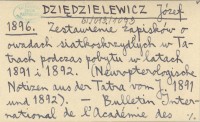 DZIĘDZIELEWICZ Józef
1896. Zestawienie zapisków o
owadach siatkoskrzydłych w Ta-
trach podczas pobytu w latach
1891 i 1892. (Neuropterologische
Notizen aus der Tatra vom J. 1891
und 1892). Bulletin Inter-
national de l'Académie des